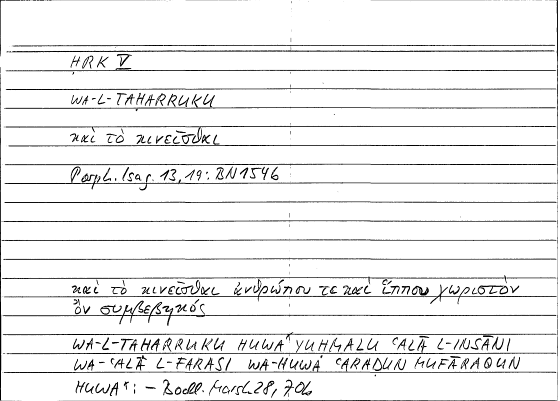 ḤRK V
WA-L-TAḤARRUKU
καὶ τὸ κινεῖσθαι
Porph. Isag. 13,19: BN 1546
καὶ τὸ κινεῖσθαι ἀνθρώπου τε καὶ ἵππου χωριστὸν
ὂν συμβεβηκός
WA-L-TAḤARRUKU HUWA⌝ YUHMALU ʿALĀ L-INSĀNI
WA-ʿALĀ L-FARASI WA-HUWA ʿARADUN MUFĀRAQUN
HUWA⌝: – Bodl. Marsh 28, 70b